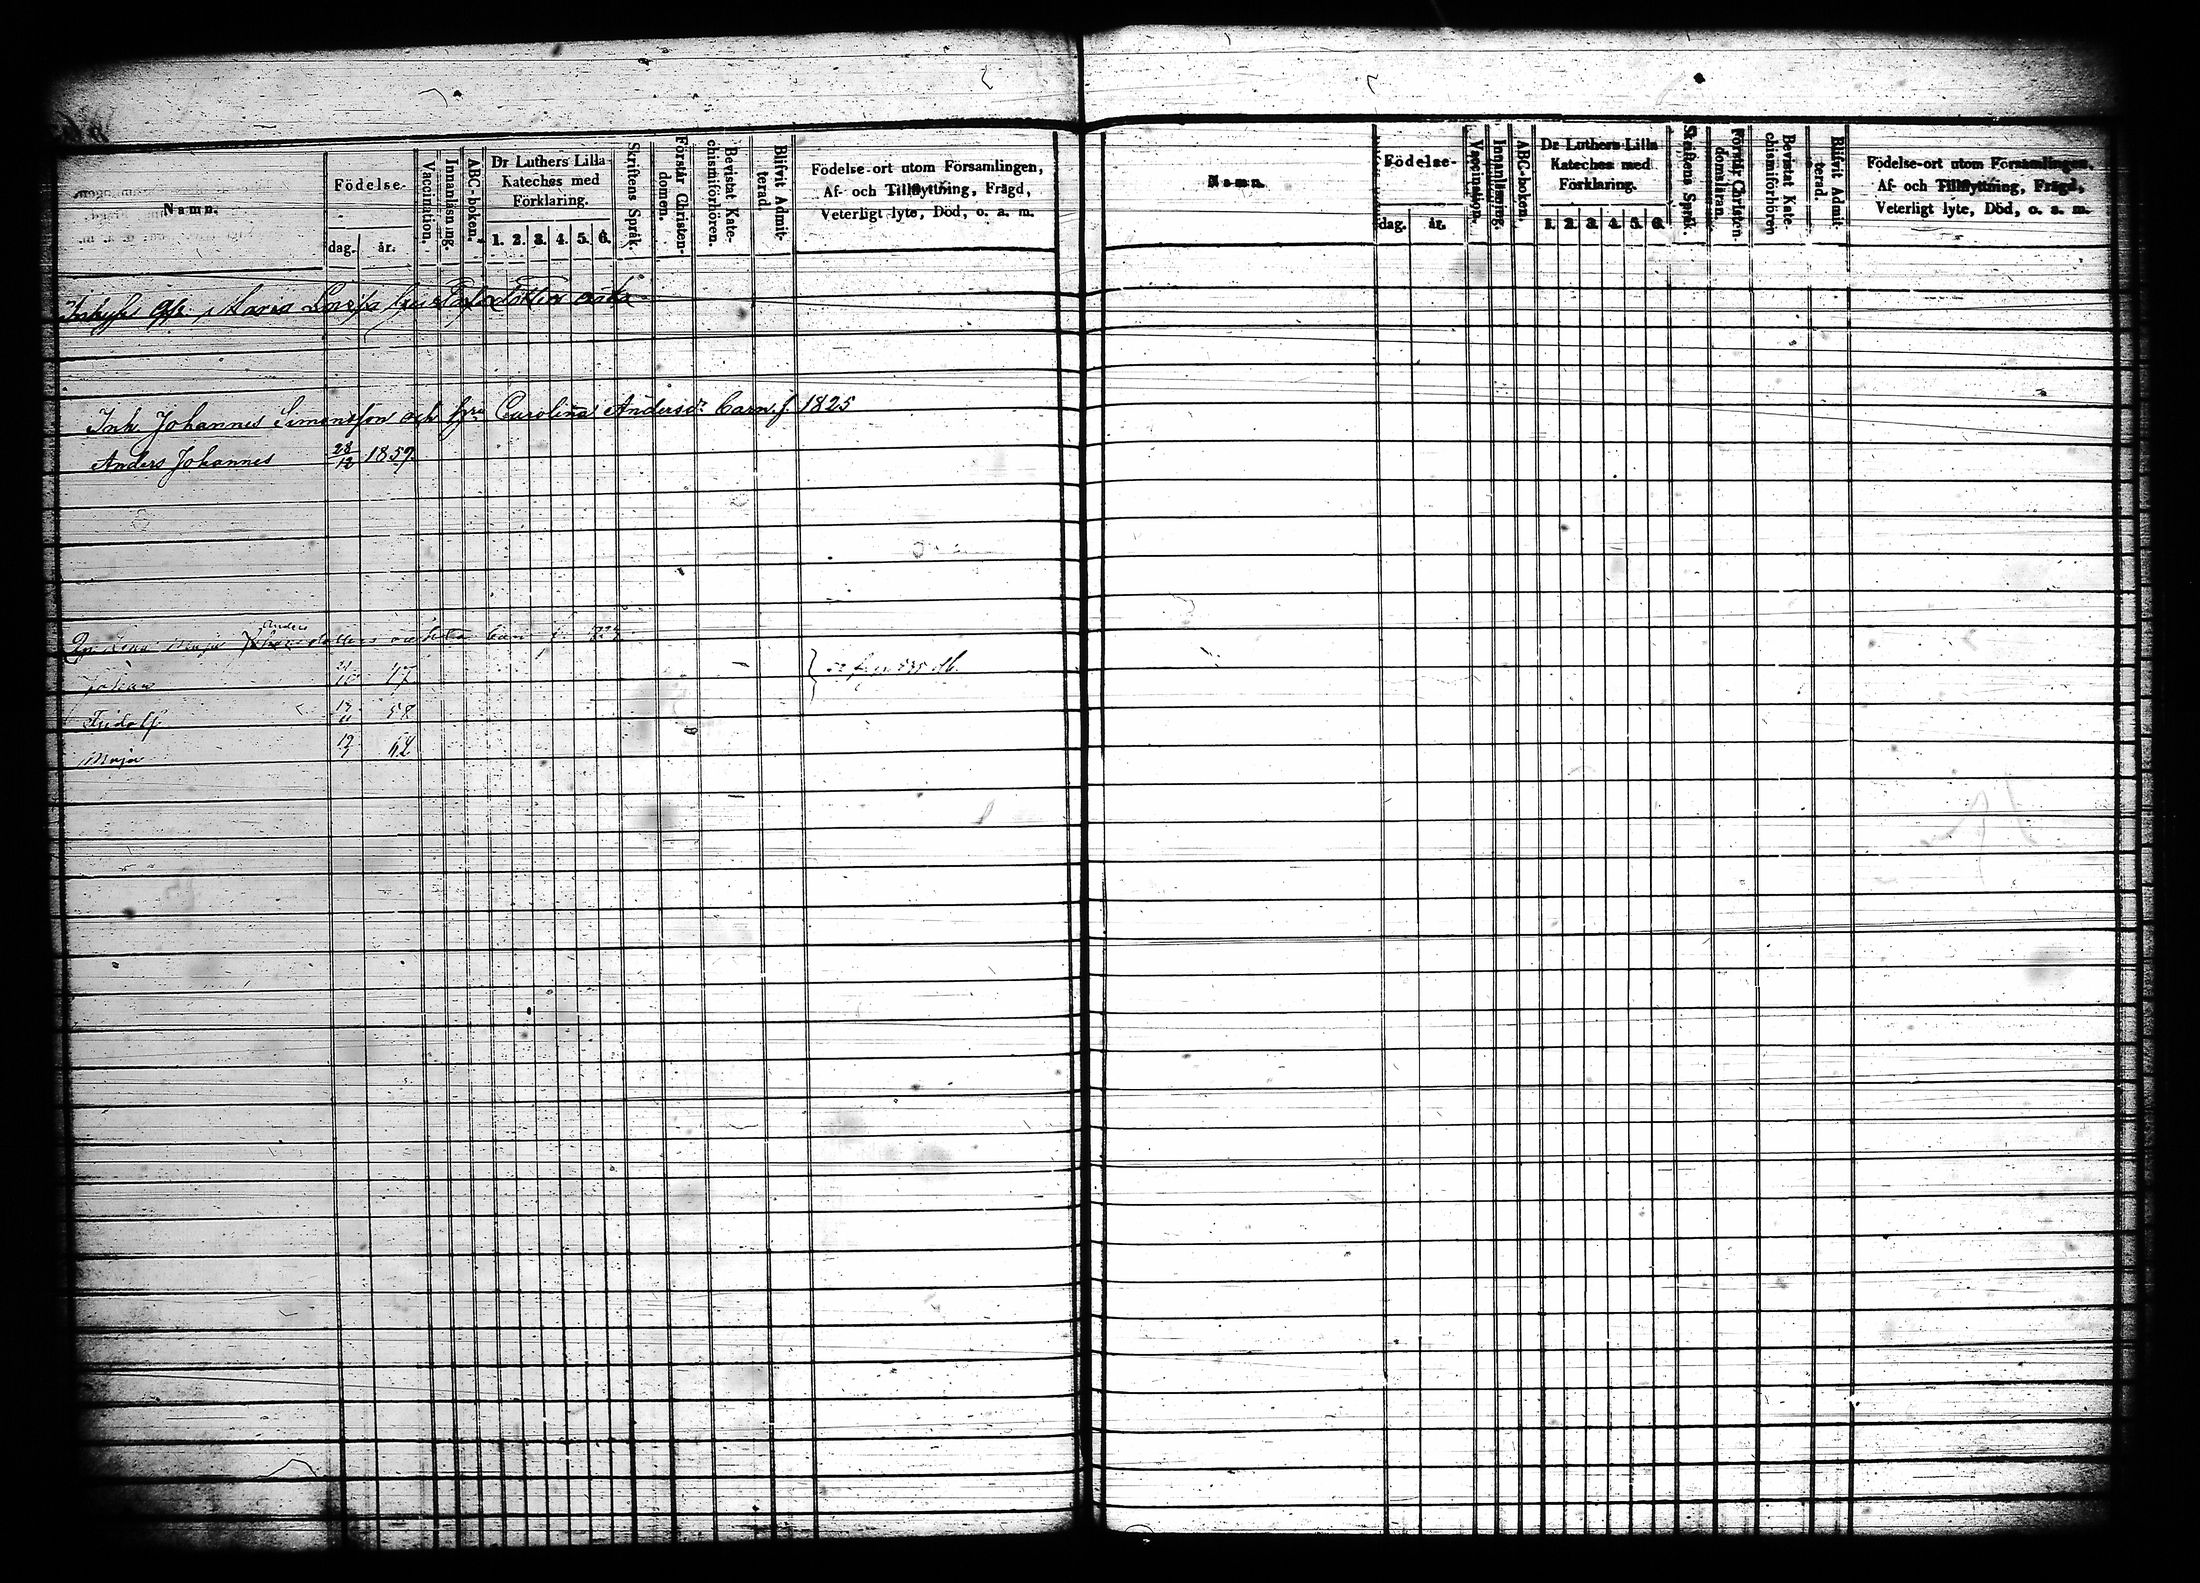 Namn.
Födelse-
dag. år.
Vaccination.
Innanläsning.
ABC-boken.
Dr Luthers Lilla
Kateches med
Förklaring.
1. 2. 3. 4. 5. 6.
Skriftens Språk.
Förstår Christen-
domen.
Bevistat Kate-
chismiförhören.
Blifvit Admit-
terad.
Födelse-ort utom Församlingen,
Af- och Tillflyttning, Frägd,
Veterligt lyte, Död, o. a. m.
Maria Lovisa
Inh. Johannes Simonsson och hru Carolina Andersdr barn. f. 1825
Anders Johannes 28/12 1859.
Anders
Lena Maja
Johan 47
Fridolf 13/11 58
Maja 19
Namn.
Födelse-
dag. år.
Vaccination.
Innanläsning.
ABC-boken.
Dr Luthers Lilla
Kateches med
Förklaring.
1. 2. 3. 4. 5. 6.
Skriftens Språk.
Förstår Christen-
domsläran.
Bevistat Kate-
chismiförhören
Blifvit Admit-
terad.
Födelse-ort utom Församlingen,
Af- och Tillflyttning, Frägd,
Veterligt lyte, Död, o. s. m.